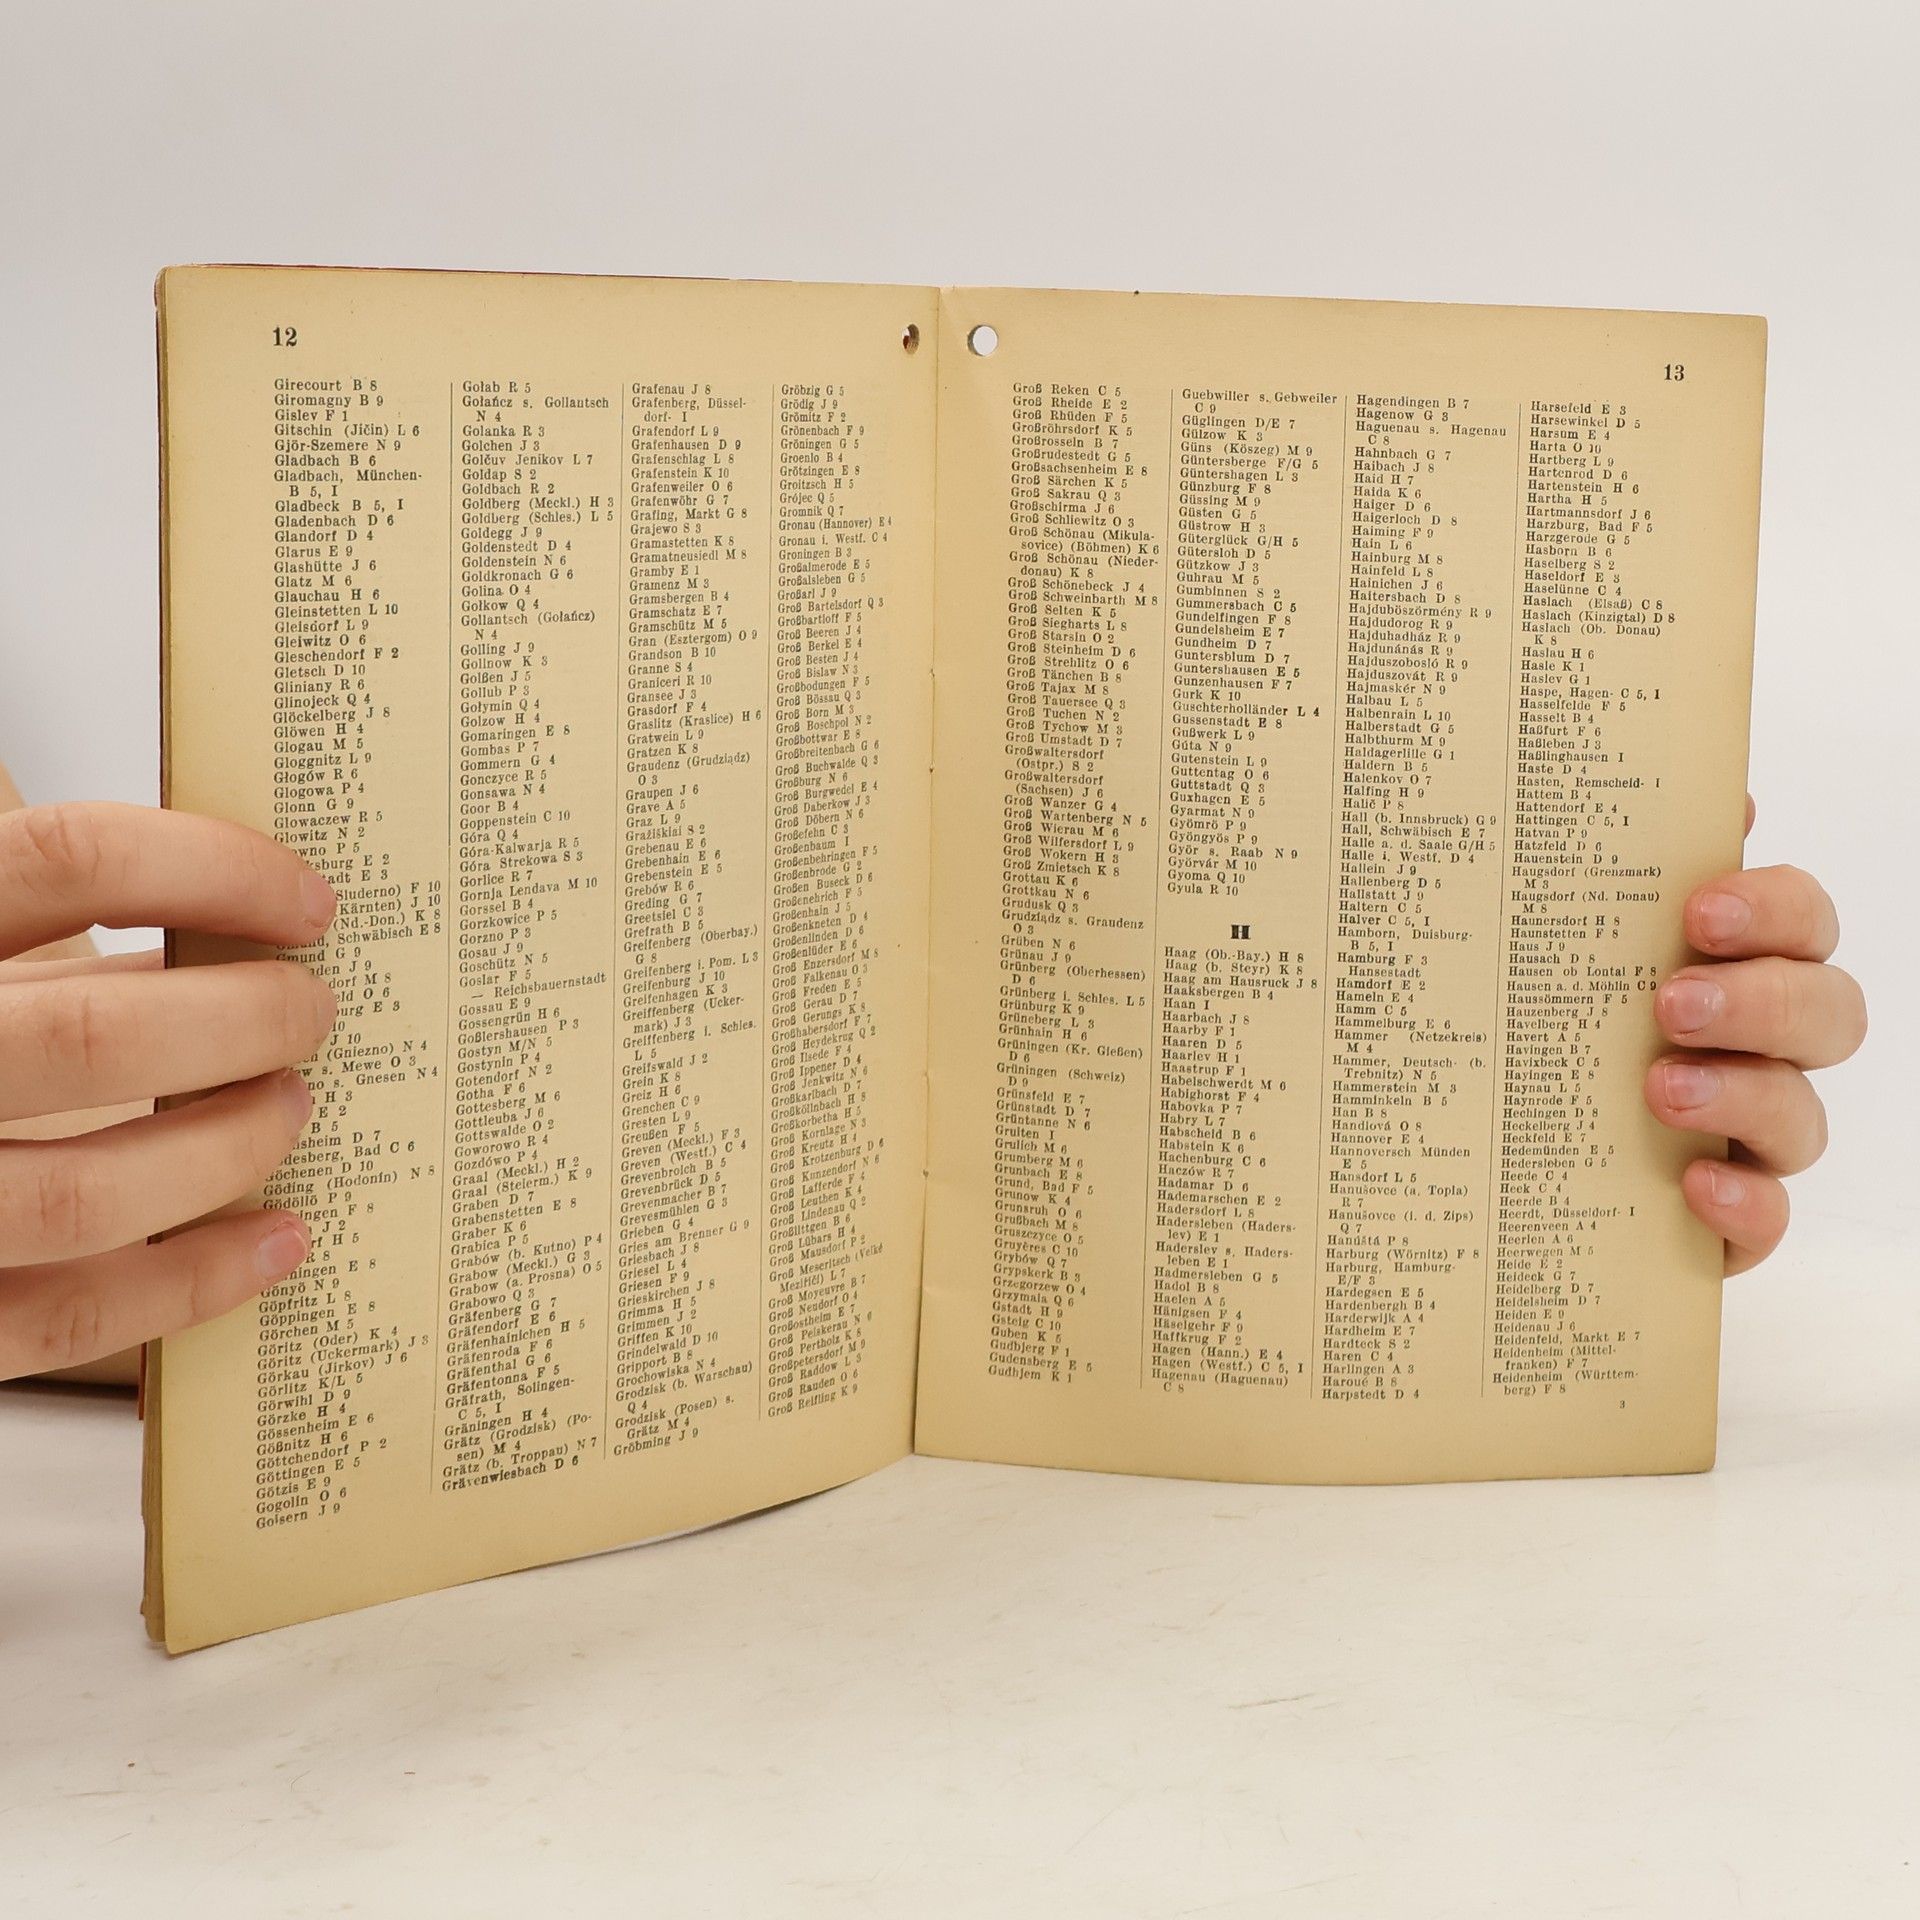 12
Girecourt B 8
Giromagny B 9
Gislev F 1
Gitschin (Jičin) L 6
Gjör-Szemere N 9
Gladbach B 6
Gladbach, München-
B 5, I
Gladbeck B 5, I
Gladenbach D 6
Glandorf D 4
Glarus E 9
Glashütte J 6
Glatz M 6
Glauchau H 6
Gleinstetten L 10
Gleisdorf L 9
Gleiwitz O 6
Gleschendorf F 2
Gletsch D 10
Gliniany R 6
Glinojeck Q 4
Glöckelberg J 8
Glöwen H 4
Glogau M 5
Gloggnitz L 9
Głogów R 6
Glogowa P 4
Glonn G 9
Glowaczew R 5
Glowitz N 2
owno P 5
ksburg E 2
stadt E 3
Sluderno) F 10
(Kärnten) J 10
(Nd.-Don.) K 8
Gmünd, Schwäbisch E 8
Gmund G 9
nden J 9
dorf M 8
eld O 6
burg E 3
10
J 10
(Gniezno) N 4
ew s. Mewe O 3
no s. Gnesen N 4
H 3
E 2
B 5
sheim D 7
desberg, Bad C 6
Göchenen D 10
Göding (Hodonín) N 8
Gödöllö P 9
ingen F 8
J 2
rf H 5
R 8
ningen E 8
Gönyö N 9
Göpfritz L 8
Göppingen E 8
Görchen M 5
Göritz (Oder) K 4
Göritz (Uckermark) J 3
Görkau (Jirkov) J 6
Görlitz K/L 5
Görwihl D 9
Görzke H 4
Gössenheim E 6
Gößnitz H 6
Göttchendorf P 2
Göttingen E 5
Götzis E 9
Gogolin O 6
Goisern J 9
Gołab R 5
Gołańcz s. Gollantsch
N 4
Golanka R 3
Golchen J 3
Golčuv Jenikov L 7
Goldap S 2
Goldbach R 2
Goldberg (Meckl.) H 3
Goldberg (Schles.) L 5
Goldegg J 9
Goldenstedt D 4
Goldenstein N 6
Goldkronach G 6
Golina O 4
Golkow Q 4
Gollantsch (Gołańcz)
N 4
Golling J 9
Gollnow K 3
Golßen J 5
Gollub P 3
Gołymin Q 4
Golzow H 4
Gomaringen E 8
Gombas P 7
Gommern G 4
Gonczyce R 5
Gonsawa N 4
Goor B 4
Goppenstein C 10
Góra Q 4
Góra-Kalwarja R 5
Góra Strekowa S 3
Gorlice R 7
Gornja Lendava M 10
Gorssel B 4
Gorzkowice P 5
Gorzno P 3
Gosau J 9
Goschütz N 5
Goslar F 5
— Reichsbauernstadt
Gossau E 9
Gossengrün H 6
Goßlershausen P 3
Gostyn M/N 5
Gostynin P 4
Gotendorf N 2
Gotha F 6
Gottesberg M 6
Gottleuba J 6
Gottswalde O 2
Goworowo R 4
Gozdówo P 4
Graal (Meckl.) H 2
Graal (Steierm.) K 9
Graben D 7
Grabenstetten E 8
Graber K 6
Grabica P 5
Grabów (b. Kutno) P 4
Grabow (Meckl.) G 3
Grabow (a. Prosna) O 5
Grabowo Q 3
Gräfenberg G 7
Gräfendorf E 6
Gräfenhainichen H 5
Gräfenroda F 6
Gräfenthal G 6
Gräfentonna F 5
Gräfrath, Solingen-
C 5, I
Gräningen H 4
Grätz (Grodzisk) (Po-
sen) M 4
Grätz (b. Troppau) N 7
Grävenwiesbach D 6
Grafenau J 8
Grafenberg, Düssel-
dorf- I
Grafendorf L 9
Grafenhausen D 9
Grafenschlag L 8
Grafenstein K 10
Grafenweiler O 6
Grafenwöhr G 7
Grafing, Markt G 8
Grajewo S 3
Gramastetten K 8
Gramatneusiedl M 8
Gramby E 1
Gramenz M 3
Gramsbergen B 4
Gramschatz E 7
Gramschütz M 5
Gran (Esztergom) O 9
Grandson B 10
Granne S 4
Graniceri R 10
Gransee J 3
Grasdorf F 4
Graslitz (Kraslice) H 6
Gratwein L 9
Gratzen K 8
Graudenz (Grudziądz)
O 3
Graupen J 6
Grave A 5
Graz L 9
Gražiškiai S 2
Grebenau E 6
Grebenhain E 6
Grebenstein E 5
Grebów R 6
Greding G 7
Greetsiel C 3
Grefrath B 5
Greifenberg (Oberbay.)
G 8
Greifenberg i. Pom. L 3
Greifenburg J 10
Greifenhagen K 3
Greiffenberg (Ucker-
mark) J 3
Greiffenberg i. Schles.
L 5
Greifswald J 2
Grein K 8
Greiz H 6
Grenchen C 9
Gresten L 9
Greußen F 5
Greven (Meckl.) F 3
Greven (Westf.) C 4
Grevenbroich B 5
Grevenbrück D 5
Grevenmacher B 7
Grevesmühlen G 3
Grieben G 4
Gries am Brenner G 9
Griesbach J 8
Griesel L 4
Griesen F 9
Grieskirchen J 8
Grimma H 5
Grimmen J 2
Griffen K 10
Grindelwald D 10
Gripport B 8
Grochowiska N 4
Grodzisk (b. Warschau)
Q 4
Grodzisk (Posen) s.
Grätz M 4
Gröbming J 9
Gröbzig G 5
Grödig J 9
Grömitz F 2
Grönenbach F 9
Gröningen G 5
Groenlo B 4
Grötzingen E 8
Groitzsch H 5
Grójec Q 5
Gromnik Q 7
Gronau (Hannover) E 4
Gronau i. Westf. C 4
Groningen B 3
Großalmerode E 5
Großalsleben G 5
Großarl J 9
Groß Bartelsdorf Q 3
Großbartloff F 5
Groß Beeren J 4
Groß Berkel E 4
Groß Besten J 4
Groß Bislaw N 3
Großbodungen F 5
Groß Bössau Q 3
Groß Born M 3
Groß Boschpol N 2
Großbottwar E 8
Großbreitenbach G 6
Groß Buchwalde Q 3
Großburg N 6
Groß Burgwedel E 4
Groß Daberkow J 3
Groß Döbern N 6
Großefehn C 3
Großenbaum I
Großenbehringen F 5
Großenbrode G 2
Großen Buseck D 6
Großenehrich F 5
Großenhain J 5
Großenkneten D 4
Großenlinden D 6
Großenlüder E 6
Groß Enzersdorf M 8
Groß Falkenau O 3
Groß Freden E 5
Groß Gerau D 7
Groß Gerungs K 8
Großhabersdorf F 7
Groß Heydekrug Q 2
Groß Ilsede F 4
Groß Ippener D 4
Groß Jenkwitz N 6
Großkarlbach D 7
Großköllnbach H 8
Großkorbetha H 5
Groß Kornlage N 3
Groß Kreutz H 4
Groß Krotzenburg D 6
Groß Kunzendorf N 6
Groß Lafferde F 4
Groß Leuthen K 4
Groß Lindenau Q 2
Großlittgen B 6
Groß Lübars H 4
Groß Mausdorf P 2
Groß Meseritsch (Velké
Meziříčí) L 7
Groß Moyeuvre B 7
Groß Neudorf O 4
Großostheim E 7
Groß Peiskerau N 6
Groß Pertholz K 8
Großpetersdorf M 9
Groß Raddow L 3
Groß Rauden O 6
Groß Reifling K 9
13
Groß Reken C 5
Groß Rheide E 2
Groß Rhüden F 5
Großröhrsdorf K 5
Großrosseln B 7
Großrudestedt G 5
Großsachsenheim E 8
Groß Särchen K 5
Groß Sakrau Q 3
Großschirma J 6
Groß Schliewitz O 3
Groß Schönau (Mikula-
sovice) (Böhmen) K 6
Groß Schönau (Nieder-
donau) K 8
Groß Schönebeck J 4
Groß Schweinbarth M 8
Groß Selten K 5
Groß Siegharts L 8
Groß Starsin O 2
Groß Steinheim D 6
Groß Strehlitz O 6
Groß Tänchen B 8
Groß Tajax M 8
Groß Tauersee Q 3
Groß Tuchen N 2
Groß Tychow M 3
Groß Umstadt D 7
Großwaltersdorf
(Ostpr.) S 2
Großwaltersdorf
(Sachsen) J 6
Groß Wanzer G 4
Groß Wartenberg N 5
Groß Wierau M 6
Groß Wilfersdorf L 9
Groß Wokern H 3
Groß Zmietsch K 8
Grottau K 6
Grottkau N 6
Grudusk Q 3
Grudziądz s. Graudenz
O 3
Grüben N 6
Grünau J 9
Grünberg (Oberhessen)
D 6
Grünberg i. Schles. L 5
Grünburg K 9
Grüneberg L 3
Grünhain H 6
Grüningen (Kr. Gießen)
D 6
Grüningen (Schweiz)
D 9
Grünsfeld E 7
Grünstadt D 7
Grüntanne N 6
Gruiten I
Grulich M 6
Grumberg M 6
Grunbach E 8
Grund, Bad F 5
Grunow K 4
Grunsruh O 6
Grußbach M 8
Gruszczyce O 5
Gruyères C 10
Grybów Q 7
Grypskerk B 3
Grzegorzew O 4
Grzymala Q 6
Gstadt H 9
Gsteig C 10
Guben K 5
Gudbjerg F 1
Gudensberg E 5
Gudhjem K 1
Guebwiller s. Gebweiler
C 9
Güglingen D/E 7
Gülzow K 3
Güns (Köszeg) M 9
Güntersberge F/G 5
Güntershagen L 3
Günzburg F 8
Güssing M 9
Güsten G 5
Güstrow H 3
Güterglück G/H 5
Gütersloh D 5
Gützkow J 3
Guhrau M 5
Gumbinnen S 2
Gummersbach C 5
Gundelfingen F 8
Gundelsheim E 7
Gundheim D 7
Guntersblum D 7
Guntershausen E 5
Gunzenhausen F 7
Gurk K 10
Guschterholländer L 4
Gussenstadt E 8
Gußwerk L 9
Gúta N 9
Gutenstein L 9
Guttentag O 6
Guttstadt Q 3
Guxhagen E 5
Gyarmat N 9
Gyömrö P 9
Gyöngyös P 9
Györ s. Raab N 9
Györvár M 10
Gyoma Q 10
Gyula R 10
H
Haag (Ob.-Bay.) H 8
Haag (b. Steyr) K 8
Haag am Hausruck J 8
Haaksbergen B 4
Haan I
Haarbach J 8
Haarby F 1
Haaren D 5
Haarlev H 1
Haastrup F 1
Habelschwerdt M 6
Habighorst F 4
Habovka P 7
Habry L 7
Habscheid B 6
Habstein K 6
Hachenburg C 6
Haczów R 7
Hadamar D 6
Hademarschen E 2
Hadersdorf L 8
Hadersleben (Haders-
lev) E 1
Haderslev s. Haders-
leben E 1
Hadmersleben G 5
Hadol B 8
Haelen A 5
Hänigsen F 4
Häselgehr F 9
Haffkrug F 2
Hagen (Hann.) E 4
Hagen (Westf.) C 5, I
Hagenau (Haguenau)
C 8
Hagendingen B 7
Hagenow G 3
Haguenau s. Hagenau
C 8
Hahnbach G 7
Haibach J 8
Haid H 7
Haida K 6
Haiger D 6
Haigerloch D 8
Haiming F 9
Hain L 6
Hainburg M 8
Hainfeld L 8
Hainichen J 6
Haitersbach D 8
Hajduböszörmény R 9
Hajdudorog R 9
Hajduhadház R 9
Hajdunánás R 9
Hajduszobosló R 9
Hajduszovát R 9
Hajmaskér N 9
Halbau L 5
Halbenrain L 10
Halberstadt G 5
Halbthurm M 9
Haldagerlille G 1
Haldern B 5
Halenkov O 7
Halfing H 9
Halič P 8
Hall (b. Innsbruck) G 9
Hall, Schwäbisch E 7
Halle a. d. Saale G/H 5
Halle i. Westf. D 4
Hallein J 9
Hallenberg D 5
Hallstatt J 9
Haltern C 5
Halver C 5, I
Hamborn, Duisburg-
B 5, I
Hamburg F 3
Hansestadt
Hamdorf E 2
Hameln E 4
Hamm C 5
Hammelburg E 6
Hammer (Netzekreis)
M 4
Hammer, Deutsch- (b.
Trebnitz) N 5
Hammerstein M 3
Hamminkeln B 5
Han B 8
Handlová O 8
Hannover E 4
Hannoversch Münden
E 5
Hansdorf L 5
Hanušovce (a. Topla)
R 7
Hanušovce (i. d. Zips)
Q 7
Hanúštá P 8
Harburg (Wörnitz) F 8
Harburg, Hamburg-
E/F 3
Hardegsen E 5
Hardenbergh B 4
Harderwijk A 4
Hardheim E 7
Hardteck S 2
Haren C 4
Harlingen A 3
Haroué B 8
Harpstedt D 4
Harsefeld E 3
Harsewinkel D 5
Harsum E 4
Harta O 10
Hartberg L 9
Hartenrod D 6
Hartenstein H 6
Hartha H 5
Hartmannsdorf J 6
Harzburg, Bad F 5
Harzgerode G 5
Hasborn B 6
Haselberg S 2
Haseldorf E 3
Haselünne C 4
Haslach (Elsaß) C 8
Haslach (Kinzigtal) D 8
Haslach (Ob. Donau)
K 8
Haslau H 6
Hasle K 1
Haslev G 1
Haspe, Hagen- C 5, I
Hasselfelde F 5
Hasselt B 4
Haßfurt F 6
Haßleben J 3
Haßlinghausen I
Haste D 4
Hasten, Remscheid- I
Hattem B 4
Hattendorf E 4
Hattingen C 5, I
Hatvan P 9
Hatzfeld D 6
Hauenstein D 9
Haugsdorf (Grenzmark)
M 3
Haugsdorf (Nd. Donau)
M 8
Haunersdorf H 8
Haunstetten F 8
Haus J 9
Hausach D 8
Hausen ob Lontal F 8
Hausen a. d. Möhlin C 9
Haussömmern F 5
Hauzenberg J 8
Havelberg H 4
Havert A 5
Havingen B 7
Havixbeck C 5
Hayingen E 8
Haynau L 5
Haynrode F 5
Hechingen D 8
Heckelberg J 4
Heckfeld E 7
Hedemünden E 5
Hedersleben G 5
Heede C 4
Heek C 4
Heerde B 4
Heerdt, Düsseldorf- I
Heerenveen A 4
Heerlen A 6
Heerwegen M 5
Heide E 2
Heideck G 7
Heidelberg D 7
Heidelsheim D 7
Heiden E 9
Heidenau J 6
Heidenfeld, Markt E 7
Heidenheim (Mittel-
franken) F 7
Heidenheim (Württem-
berg) F 8
3